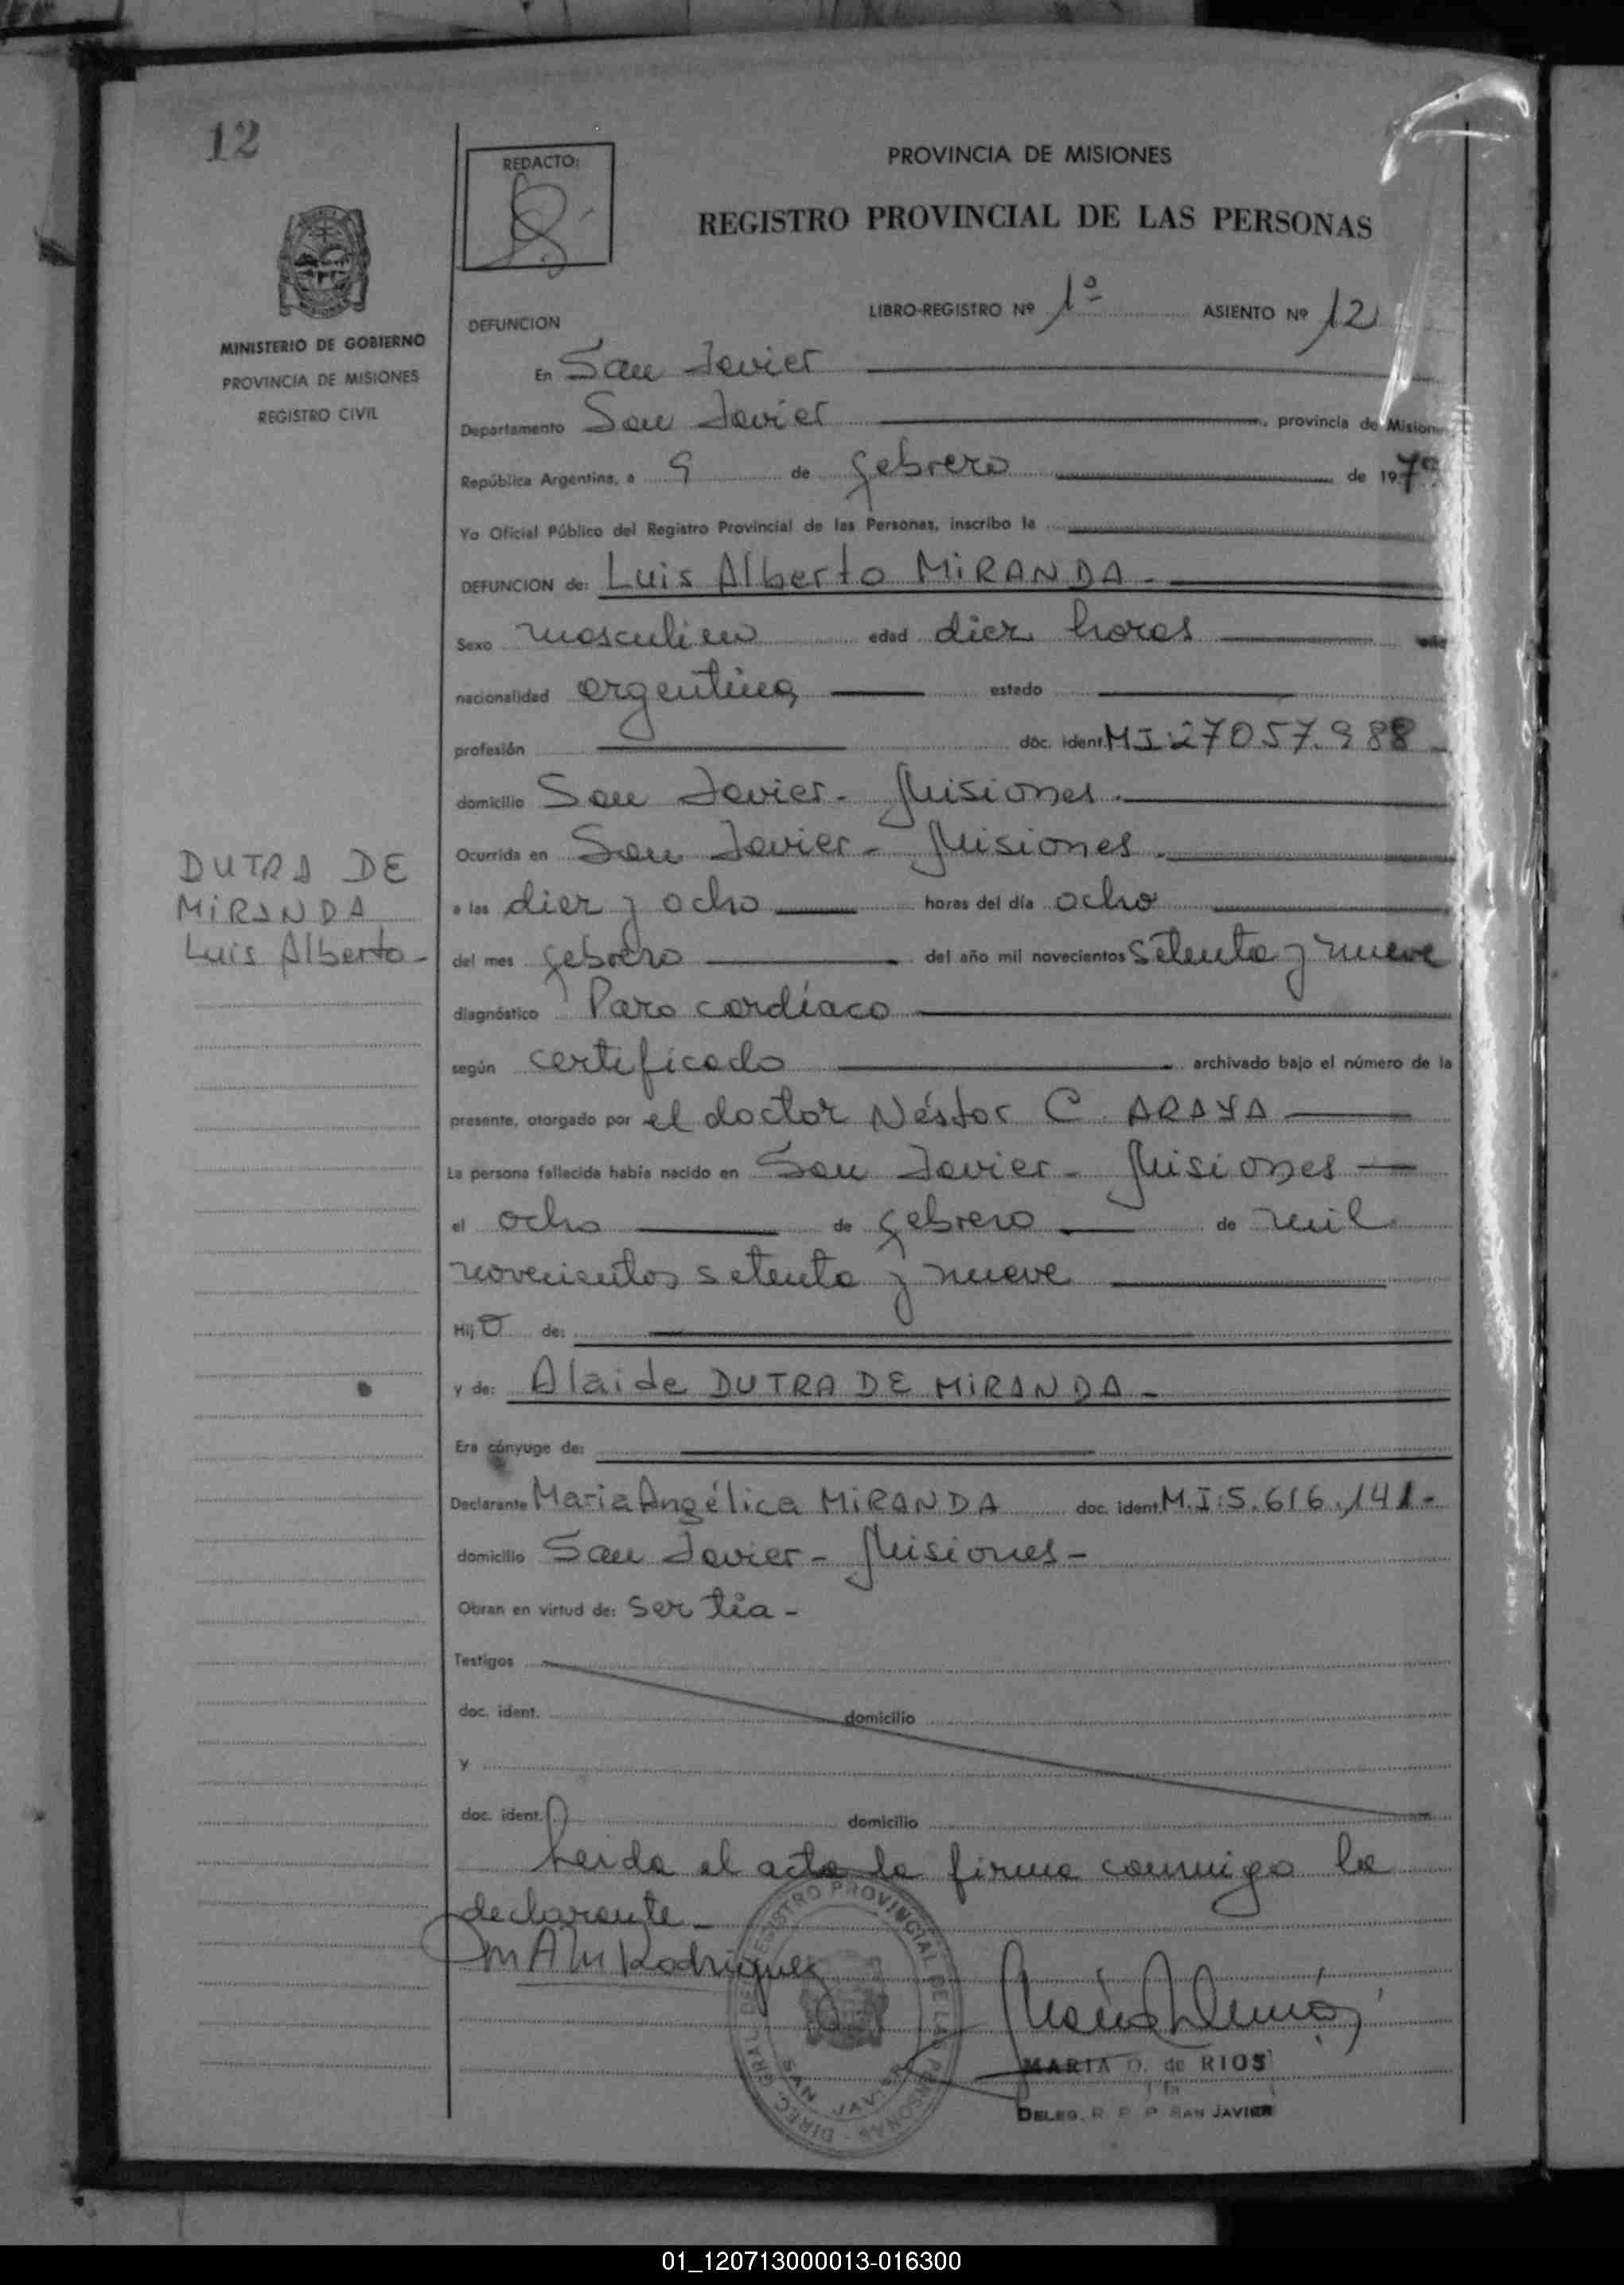 12
REDACTO:
PROVINCIA DE MISIONES
REGISTRO PROVINCIAL DE LAS PERSONAS
MINISTERIO DE GOBIERNO
PROVINCIA DE MISIONES
REGISTRO CIVIL
LIBRO-REGISTRO Nº 1º ASIENTO Nº 12
DEFUNCION
En San Javier
Departamento San Javier, provincia de Misiones
República Argentina, a 9 de febrero de 197
Yo Oficial Público del Registro Provincial de las Personas, inscribo la
DEFUNCION de: Luis Alberto MiRANDA -
Sexo masculino edad diez horas
nacionalidad argentina estado
profesión doc. ident. MI:27057.988
domicilio San Javier - Misiones -
Ocurrida en San Javier - Misiones -
DUTRA DE
MiRANDA
Luis Alberto -
a las diez y ocho horas del día ocho
del mes febrero del año mil novecientos setenta y nueve
diagnóstico Paro cardíaco
según certificado archivado bajo el número de la
presente, otorgado por el doctor Néstor C. ARAYA
La persona fallecida había nacido en San Javier - Misiones
el ocho de febrero de mil
novecientos setenta y nueve
Hijo de:
y de: Alaide DUTRA DE MiRANDA -
Era cónyuge de:
Declarante Maria Angélica MiRANDA doc. ident. M.I:5.616.141-
domicilio San Javier - Misiones -
Obran en virtud de: ser tía -
Testigos
doc. ident. domicilio
y
doc. ident. domicilio
Leida el acta la firma conmigo la
declarante -
Rodriguez
DIREC. GRAL. DEL REGISTRO PROVINCIAL DE LAS PERSONAS
SAN JAVIER
MARIA O. de RIOS
DELEG. R. P. P. SAN JAVIER
01_120713000013-016300